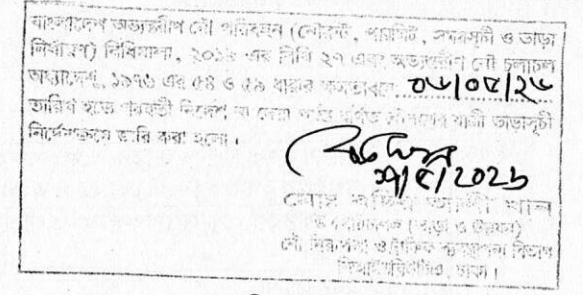 বাংলাদেশ অভ্যন্তরীণ নৌ পরিবহন (নৌরুট, পারমিট, সময়সূচী ও ভাড়া
নির্ধারণ) বিধিমালা, ২০১৯ এর বিধি ২৭ এবং অভ্যন্তরীণ নৌ চলাচল
অধ্যাদেশ, ১৯৭৬ এর ৫৪ ও ৫৯ ধারার ক্ষমতাবলে
তারিখ হতে পরবর্তী নির্দেশ না দেয়া পর্যন্ত বর্ণিত নৌপথের যাত্রী ভাড়াসূচী
নির্দেশক্রমে জারি করা হলো।
খান
(ভাড়া ও উন্নয়ন)
নৌ নিরাপত্তা ও ট্রাফিক ব্যবস্থাপনা বিভাগ
বিআইডব্লিউটিএ, ঢাকা।